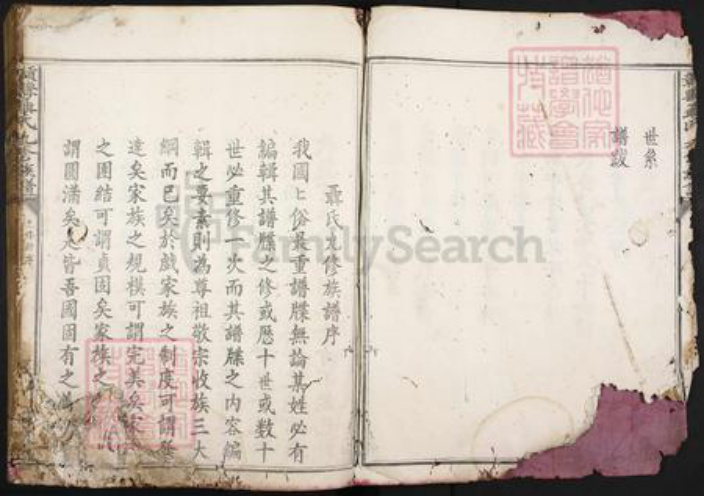 世系
譜跋
聶氏九修族譜序
我國ヒ俗最重譜牒無論某姓必有
編輯其譜牒之修或歷十世或數十
世必重修一次而其譜牒之內容編
輯之要素則為尊祖敬宗收族三大
綱而已矣於戲家族之制度可謂發
達矣家族之規模可謂完美矣家
之團結可謂貞固矣家族之
謂圓滿矣是皆吾國固有之
FamilySearch